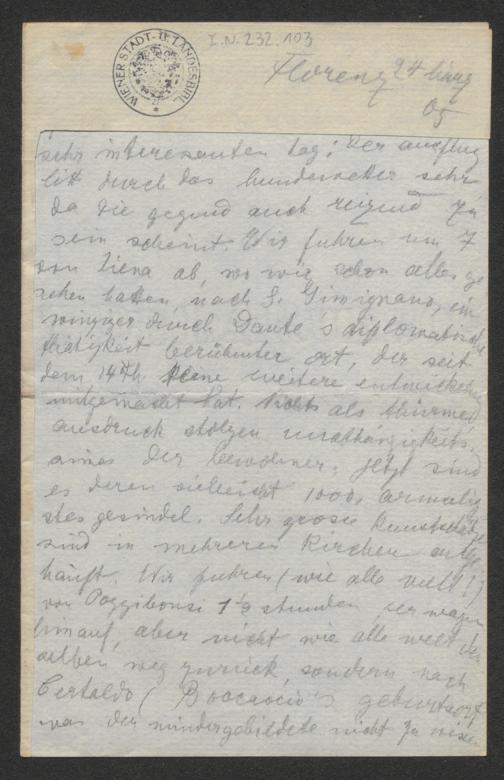 WIENER STADT-U. LANDESBIBL.
I.N. 232.103
Florenz 24 März
05
sehr interessanten tag; der ausflug
litt durch das hundewetter sehr
da die gegend auch reizend zu
sein scheint. Wir fuhren um 7
von Siena ab, wo wir schon alles ge
sehen hatten, nach S. Gimignano, ein
winziger durch Dante's diplomatische
thätigkeit berühmter ort, der seit
dem 14th keine weitere entwickelung
mitgemacht hat. Nichts als thürme,
ausdruck stolzen unabhängigkeits
sinnes der bewohner. Jetzt sind
es deren vielleicht 1000, armselig
stes gesindel. Sehr grosse kunstschätze
sind in mehreren kirchen ange
häuft. Wir fuhren (wie alle welt!)
von Poggibonsi 1½ stunden per wagen
hinauf, aber nicht wie alle welt den
selben weg zurück, sondern nach
Certaldo (Boccaccio's geburtsort
was der mindergebildete nicht zu wissen